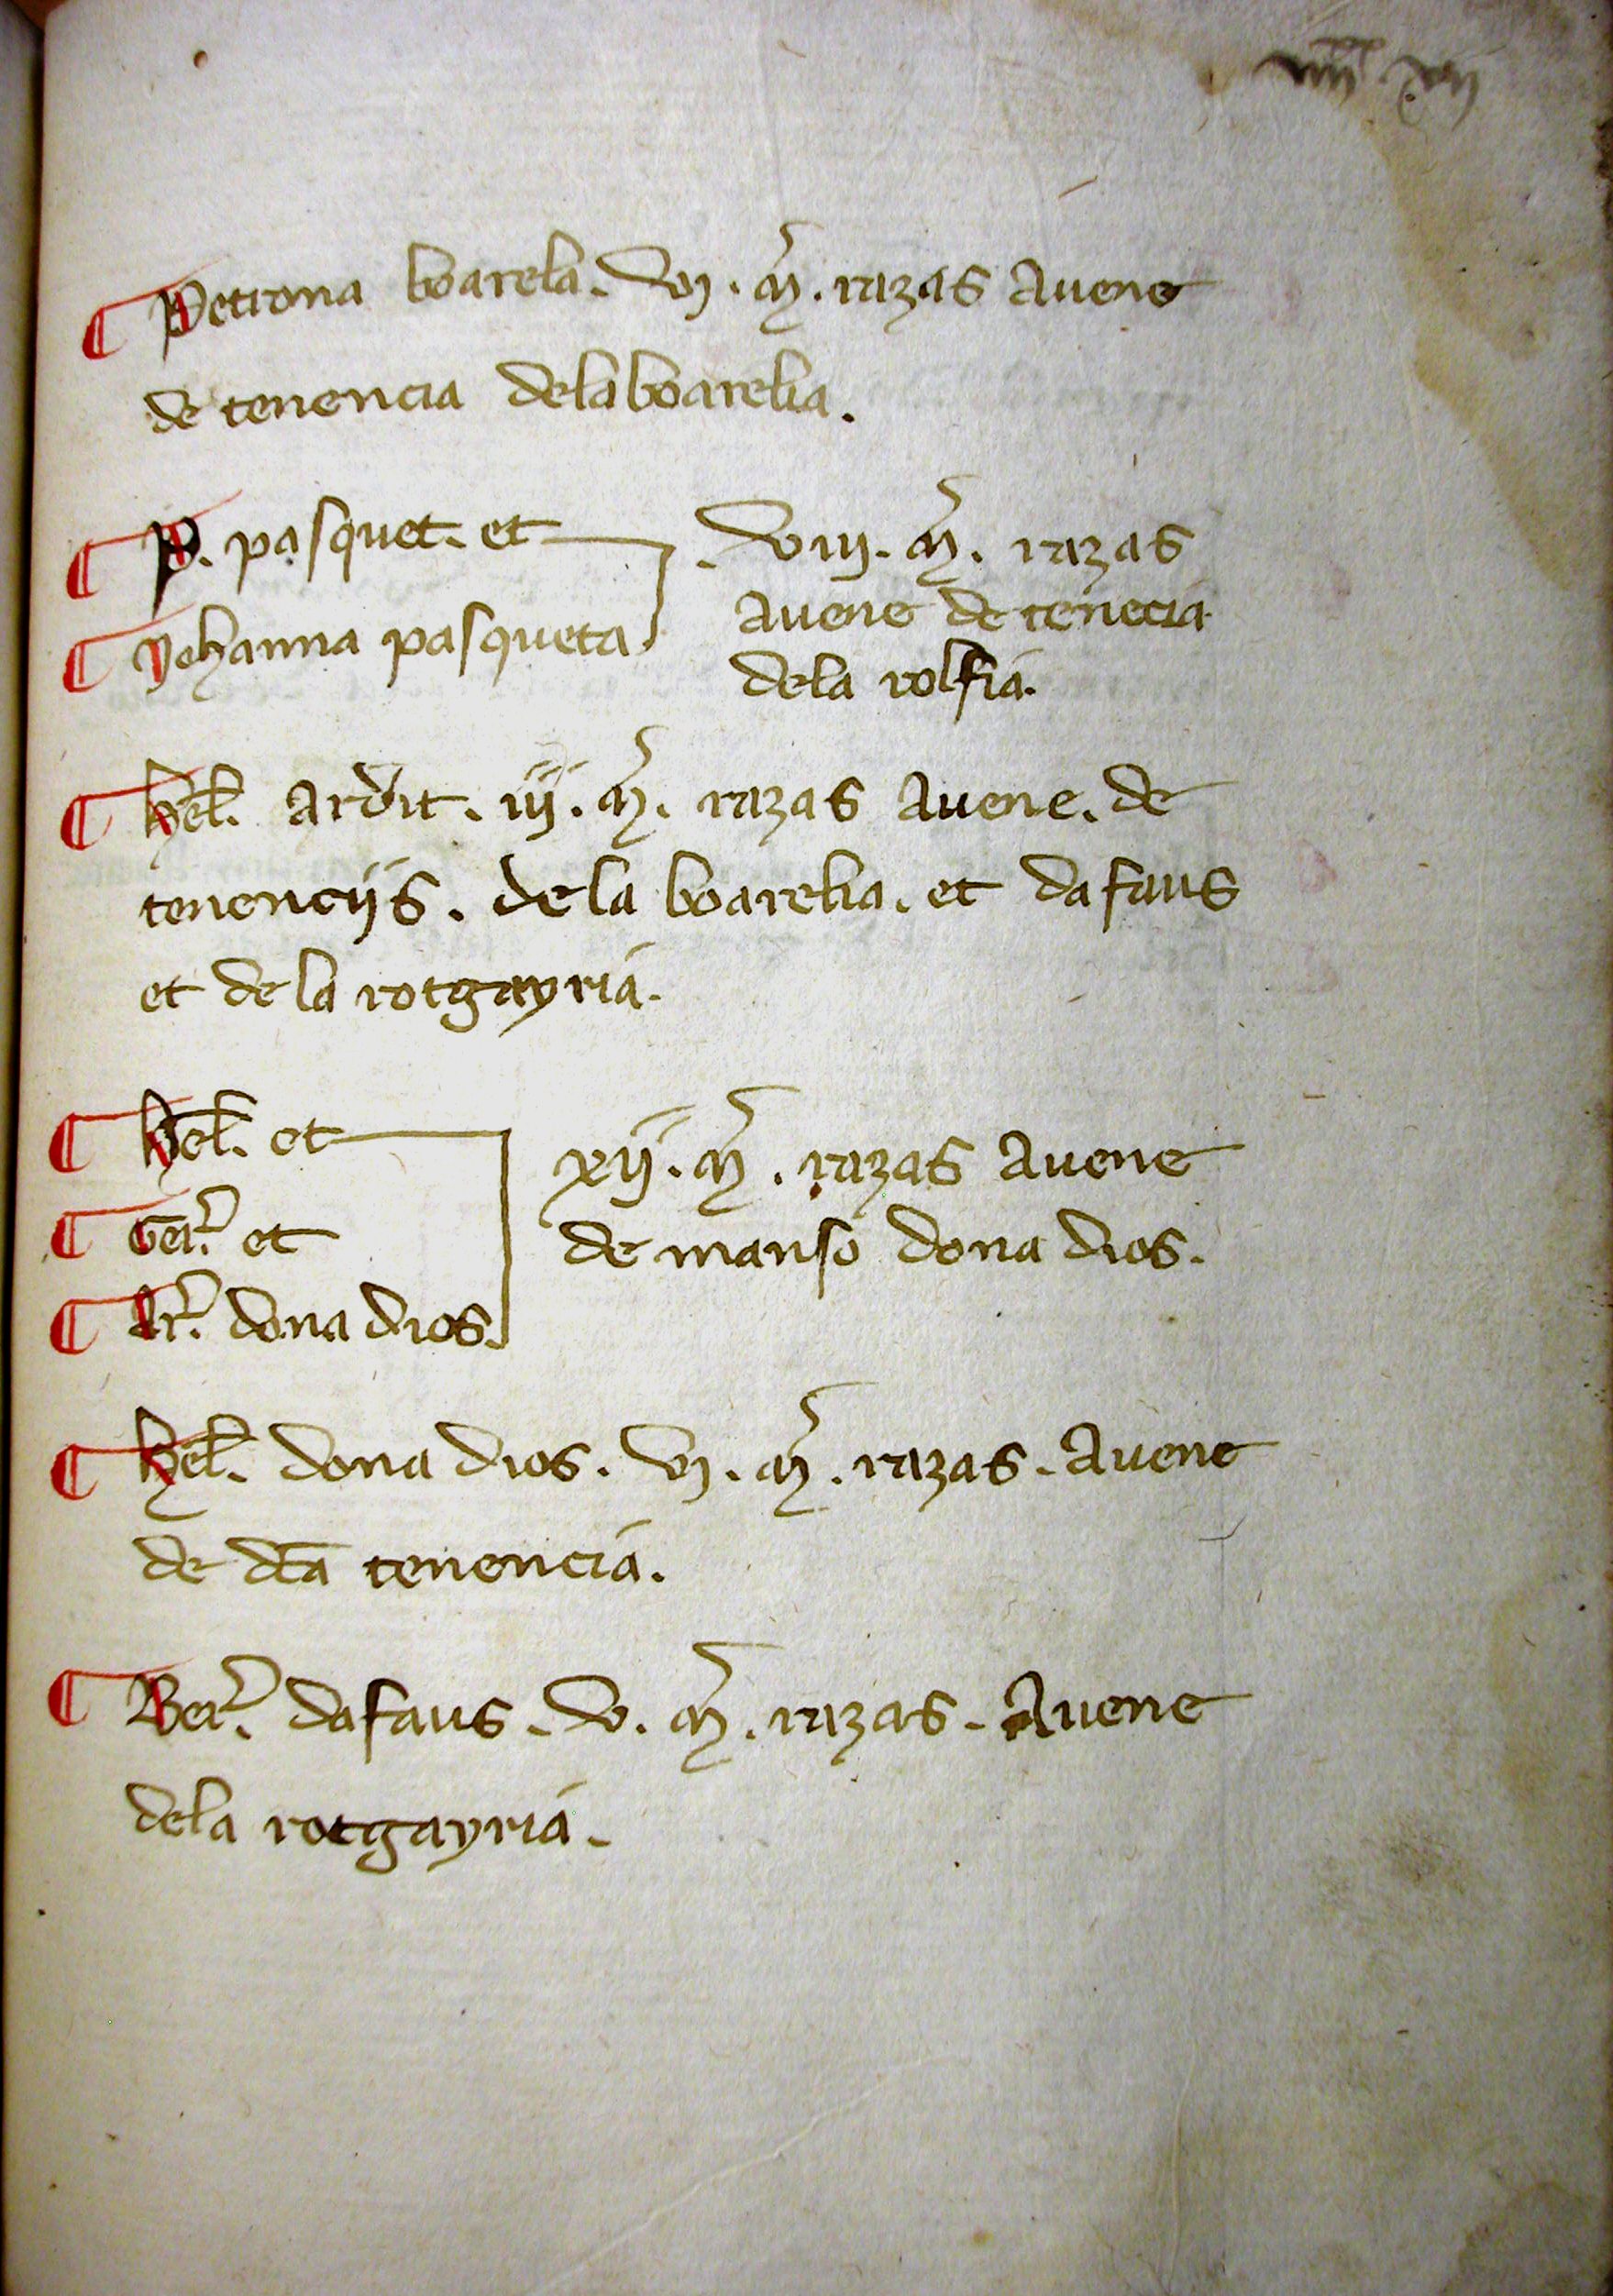 ¶ Petrona boarela. vj. m̃. razas Avene
de tenencia delaboarelia.
¶ P. pasquet. et
¶ Johanna pasqueta
. viij. m̃. razas
Avene de tenẽcia
dela rolfia.
¶ hel̃. Ardit. iij. m̃. razas Avene. de
tenencijs. de la boarelia. et dafaus
et de la rotgayria.
¶ hel̃. et
¶ Ger̃. et
¶ Ar̃. dona dios.
xij. m̃. razas Avene
de manso dona dios.
¶ hel̃. dona dios. vj. m̃. razas. Avene
de dc̃a tenencia.
¶ Ber̃. dafaus. v. m̃. razas. Avene
dela rotgayria.